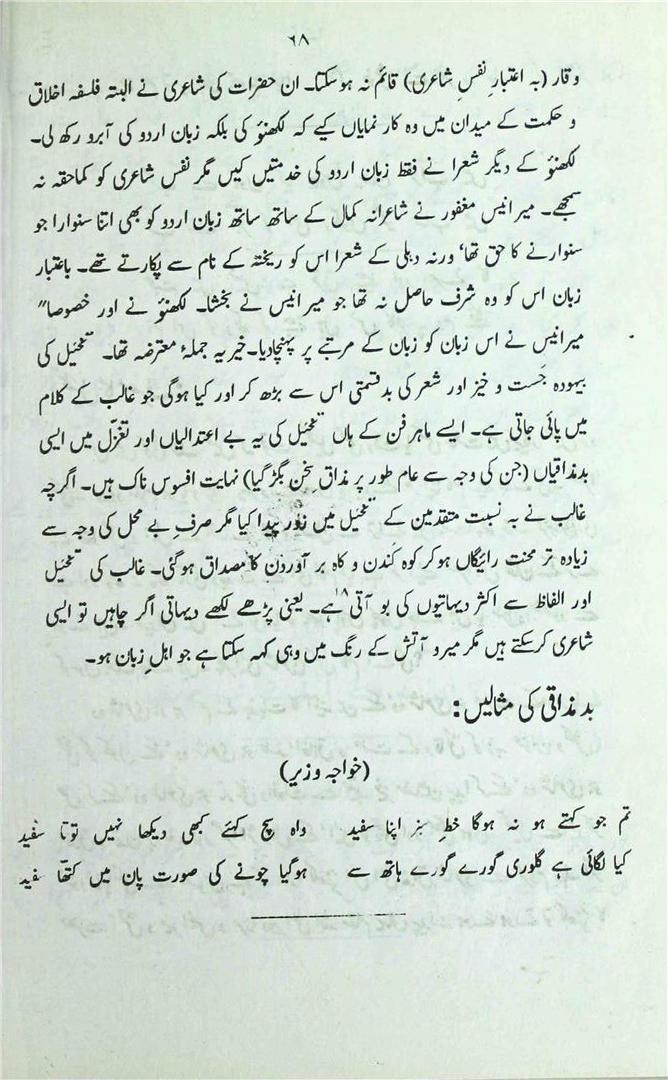 ۶۸
وقار (بہ اعتبارِ نفسِ شاعری) قائم نہ ہو سکتا۔ ان حضرات کی شاعری نے البتہ فلسفہ اخلاق
و حکمت کے میدان میں وہ کار نمایاں کیے کہ لکھنؤ کی بلکہ زبان اردو کی آبرو رکھ لی۔
لکھنؤ کے دیگر شعرا نے فقط زبان اردو کی خدمتیں کیں مگر نفس شاعری کو کماحقہ نہ
سمجھے۔ میر انیس مغفور نے شاعرانہ کمال کے ساتھ ساتھ زبان اردو کو بھی اتنا سنوارا جو
سنوارنے کا حق تھا، ورنہ دہلی کے شعرا اس کو ریختہ کے نام سے پکارتے تھے۔ باعتبار
زبان اس کو وہ شرف حاصل نہ تھا جو میر انیس نے بخشا۔ لکھنؤ نے اور خصوصاً
میر انیس نے اس زبان کو زبان کے مرتبے پر پہنچا دیا۔ خیر یہ جملۂ معترضہ تھا۔ تخئیل کی
بیہودہ جَست و خیز اور شعر کی بدقسمتی اس سے بڑھ کر اور کیا ہوگی جو غالب کے کلام
میں پائی جاتی ہے۔ ایسے ماہر فن کے ہاں تخئیل کی یہ بے اعتدالیاں اور تغزّل میں ایسی
بدمذاقیاں (جن کی وجہ سے عام طور پر مذاق سخن بگڑ گیا) نہایت افسوس ناک ہیں۔ اگرچہ
غالب نے بہ نسبت متقدمین کے تخئیل میں زور پیدا کیا مگر صرفِ بے محل کی وجہ سے
زیادہ تر محنت رائیگاں ہو کر کوہ کَندن و کاہ بر آوَردن کا مصداق ہوگئی۔ غالب کی تخئیل
اور الفاظ سے اکثر دیہاتیوں کی بو آتی ہے۱۸۔ یعنی پڑھے لکھے دیہاتی اگر چاہیں تو ایسی
شاعری کرسکتے ہیں مگر میر و آتش کے رنگ میں وہی کہہ سکتا ہے جو اہلِ زبان ہو۔
بدمذاقی کی مثالیں:
(خواجہ وزیر)
تم جو کہتے ہو نہ ہوگا خطِ سبز اپنا سفید واہ سچ کہئے کبھی دیکھا نہیں توتا سفید
کیا لگائی ہے گلوری گورے گورے ہاتھ سے ہوگیا چونے کی صورت پان میں کتھّا سفید